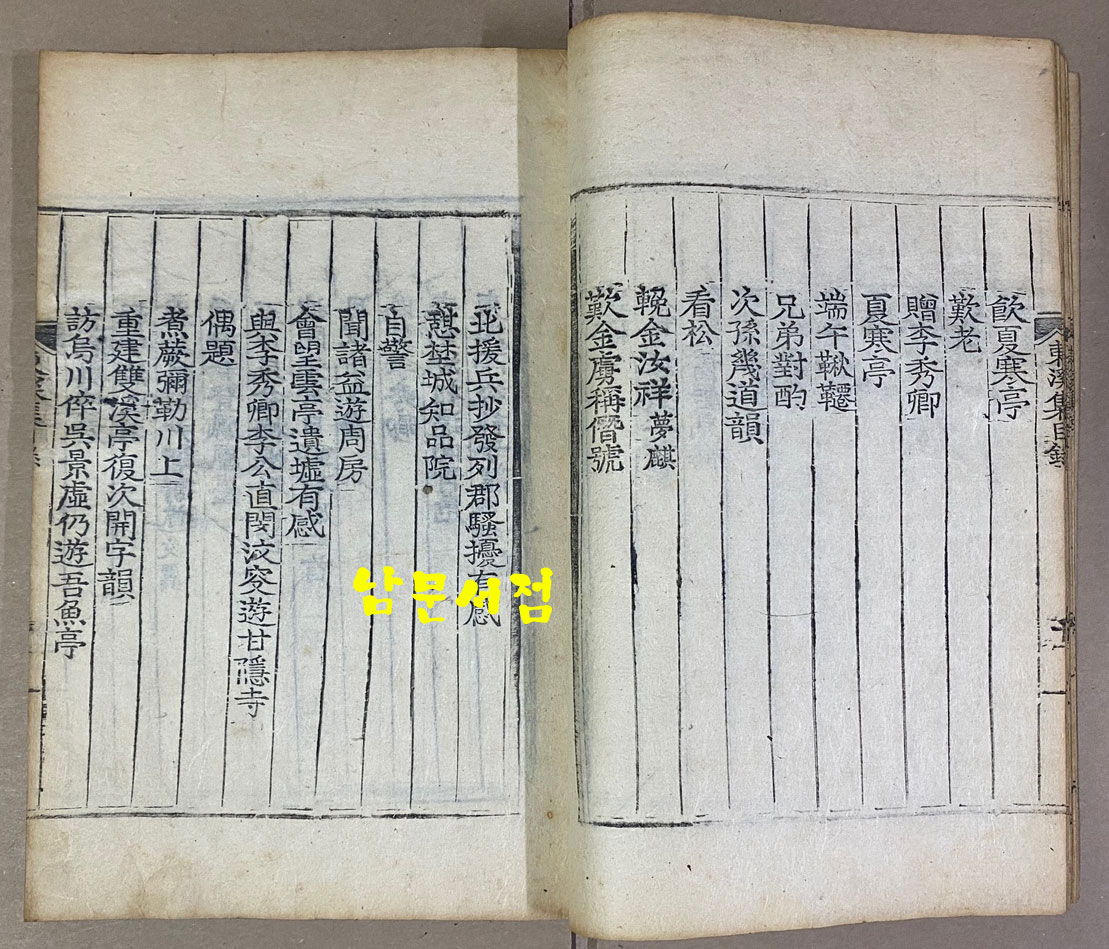 東溪集目錄
飲夏寒亭
歎老
贈李秀卿
夏寒亭
端午鞦韆
兄弟對酌
次孫幾道韻
看松
輓金汝祥夢麒
歎金虜稱僭號
北援兵抄發列郡騷擾有感
憇椘城知品院
自警
聞諸益遊周房
會望雲亭遺墟有感
與李秀卿李公直閔汶叟遊甘隱寺
偶題
煮蕨彌勒川上
重建雙溪亭復次開字韻
訪烏川倅吳景虛仍遊吾魚亭
남문서점